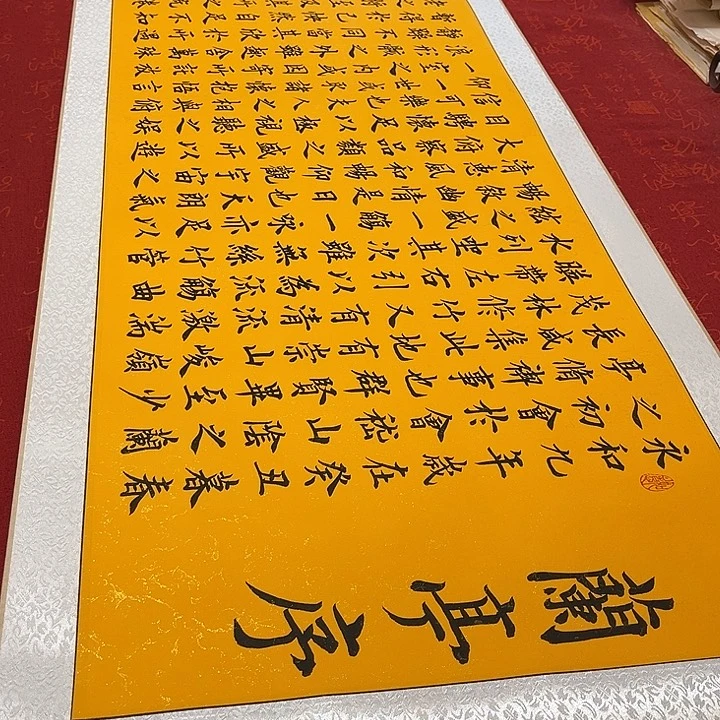 蘭亭序
永和九年歲在癸丑暮春
之初會於會稽山陰之蘭
亭脩禊事也群賢畢至少
長咸集此地有崇山峻嶺
茂林脩竹又有清流激湍
暎帶左右引以為流觴曲
水列坐其次雖無絲竹管
弦之盛一觴一詠亦足以
暢敘幽情是日也天朗氣
清惠風和暢仰觀宇宙之
大俯察品類之盛所以遊
目騁懷足以極視聽之娛
信可樂也夫人之相與俯
仰一世或取諸懷抱悟言
一室之內或因寄所託放
浪形骸之外雖趣舍萬殊
靜躁不同當其欣於所遇
暫得於己快然自足不知